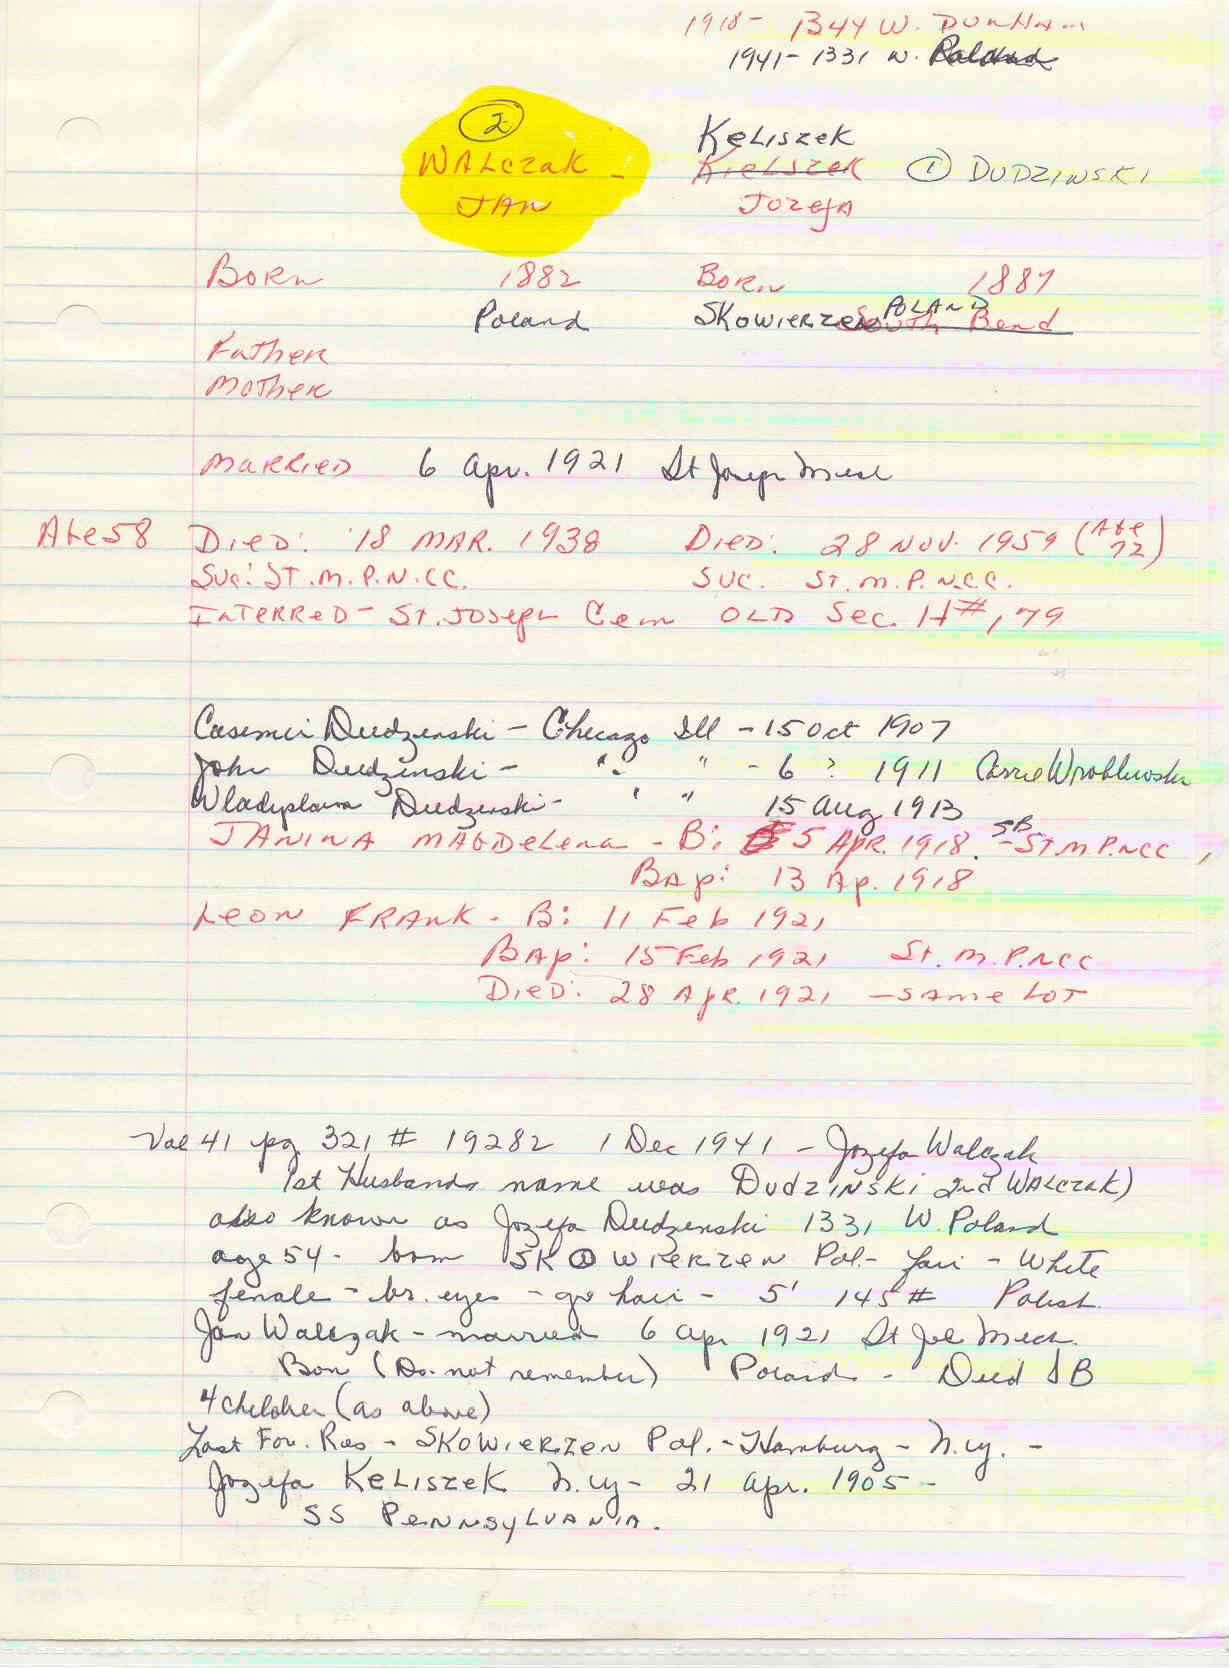 1918- 1344 W. DUNHAM
1941- 1331 W. Poland
② KELISZEK
WALCZAK - KIELSZEK ① DUDZINSKI
JAN JOZEFA
BORN 1882 BORN 1887
Poland SKOWIERZEN POLAND South Bend
Father
Mother
MARRIED 6 Apr. 1921 St Joseph Mich
Age 58 DIED: 18 MAR. 1938 DIED: 28 NOV. 1959 (Age 72)
SUC: ST. M. P. N. CC. SUC. ST. M. P. N. C. C.
INTERRED - ST. JOSEPH Cem OLD Sec. H #, 79
Casimir Dudzinski - Chicago Ill - 15 Oct 1907
John Dudzinski - " " - 6 ? 1911 Carrie Wroblewski
Wladyslawa Dudzinski - " " 15 Aug 1913
JANINA MAGDELENA - B: 5 APR. 1918. SB - ST. M. P. NCC
BAP: 13 Ap. 1918
LEON FRANK - B: 11 Feb 1921
BAP: 15 Feb 1921 St. M. P. NCC
DIED: 28 APR. 1921 - SAME LOT
Vol 41 pg 321 # 19282 1 Dec 1941 - Jozefa Walczak
1st Husbands name was DUDZINSKI 2nd WALCZAK)
also known as Jozefa Dudzinski 1331 W. Poland
age 54 - born SKOWIERZEN Pol. - fair - White
female - br. eyes - gr hair - 5' 145 # Polish.
Jan Walczak - married 6 Apr 1921 St Joe Mich.
Born (Do not remember) Poland - Died SB
4 children (as above)
Last For. Res - SKOWIERZEN Pol. - Hamburg - N.Y. -
Jozefa KELISZEK N.Y - 21 Apr. 1905 -
SS PENNSYLVANIA.